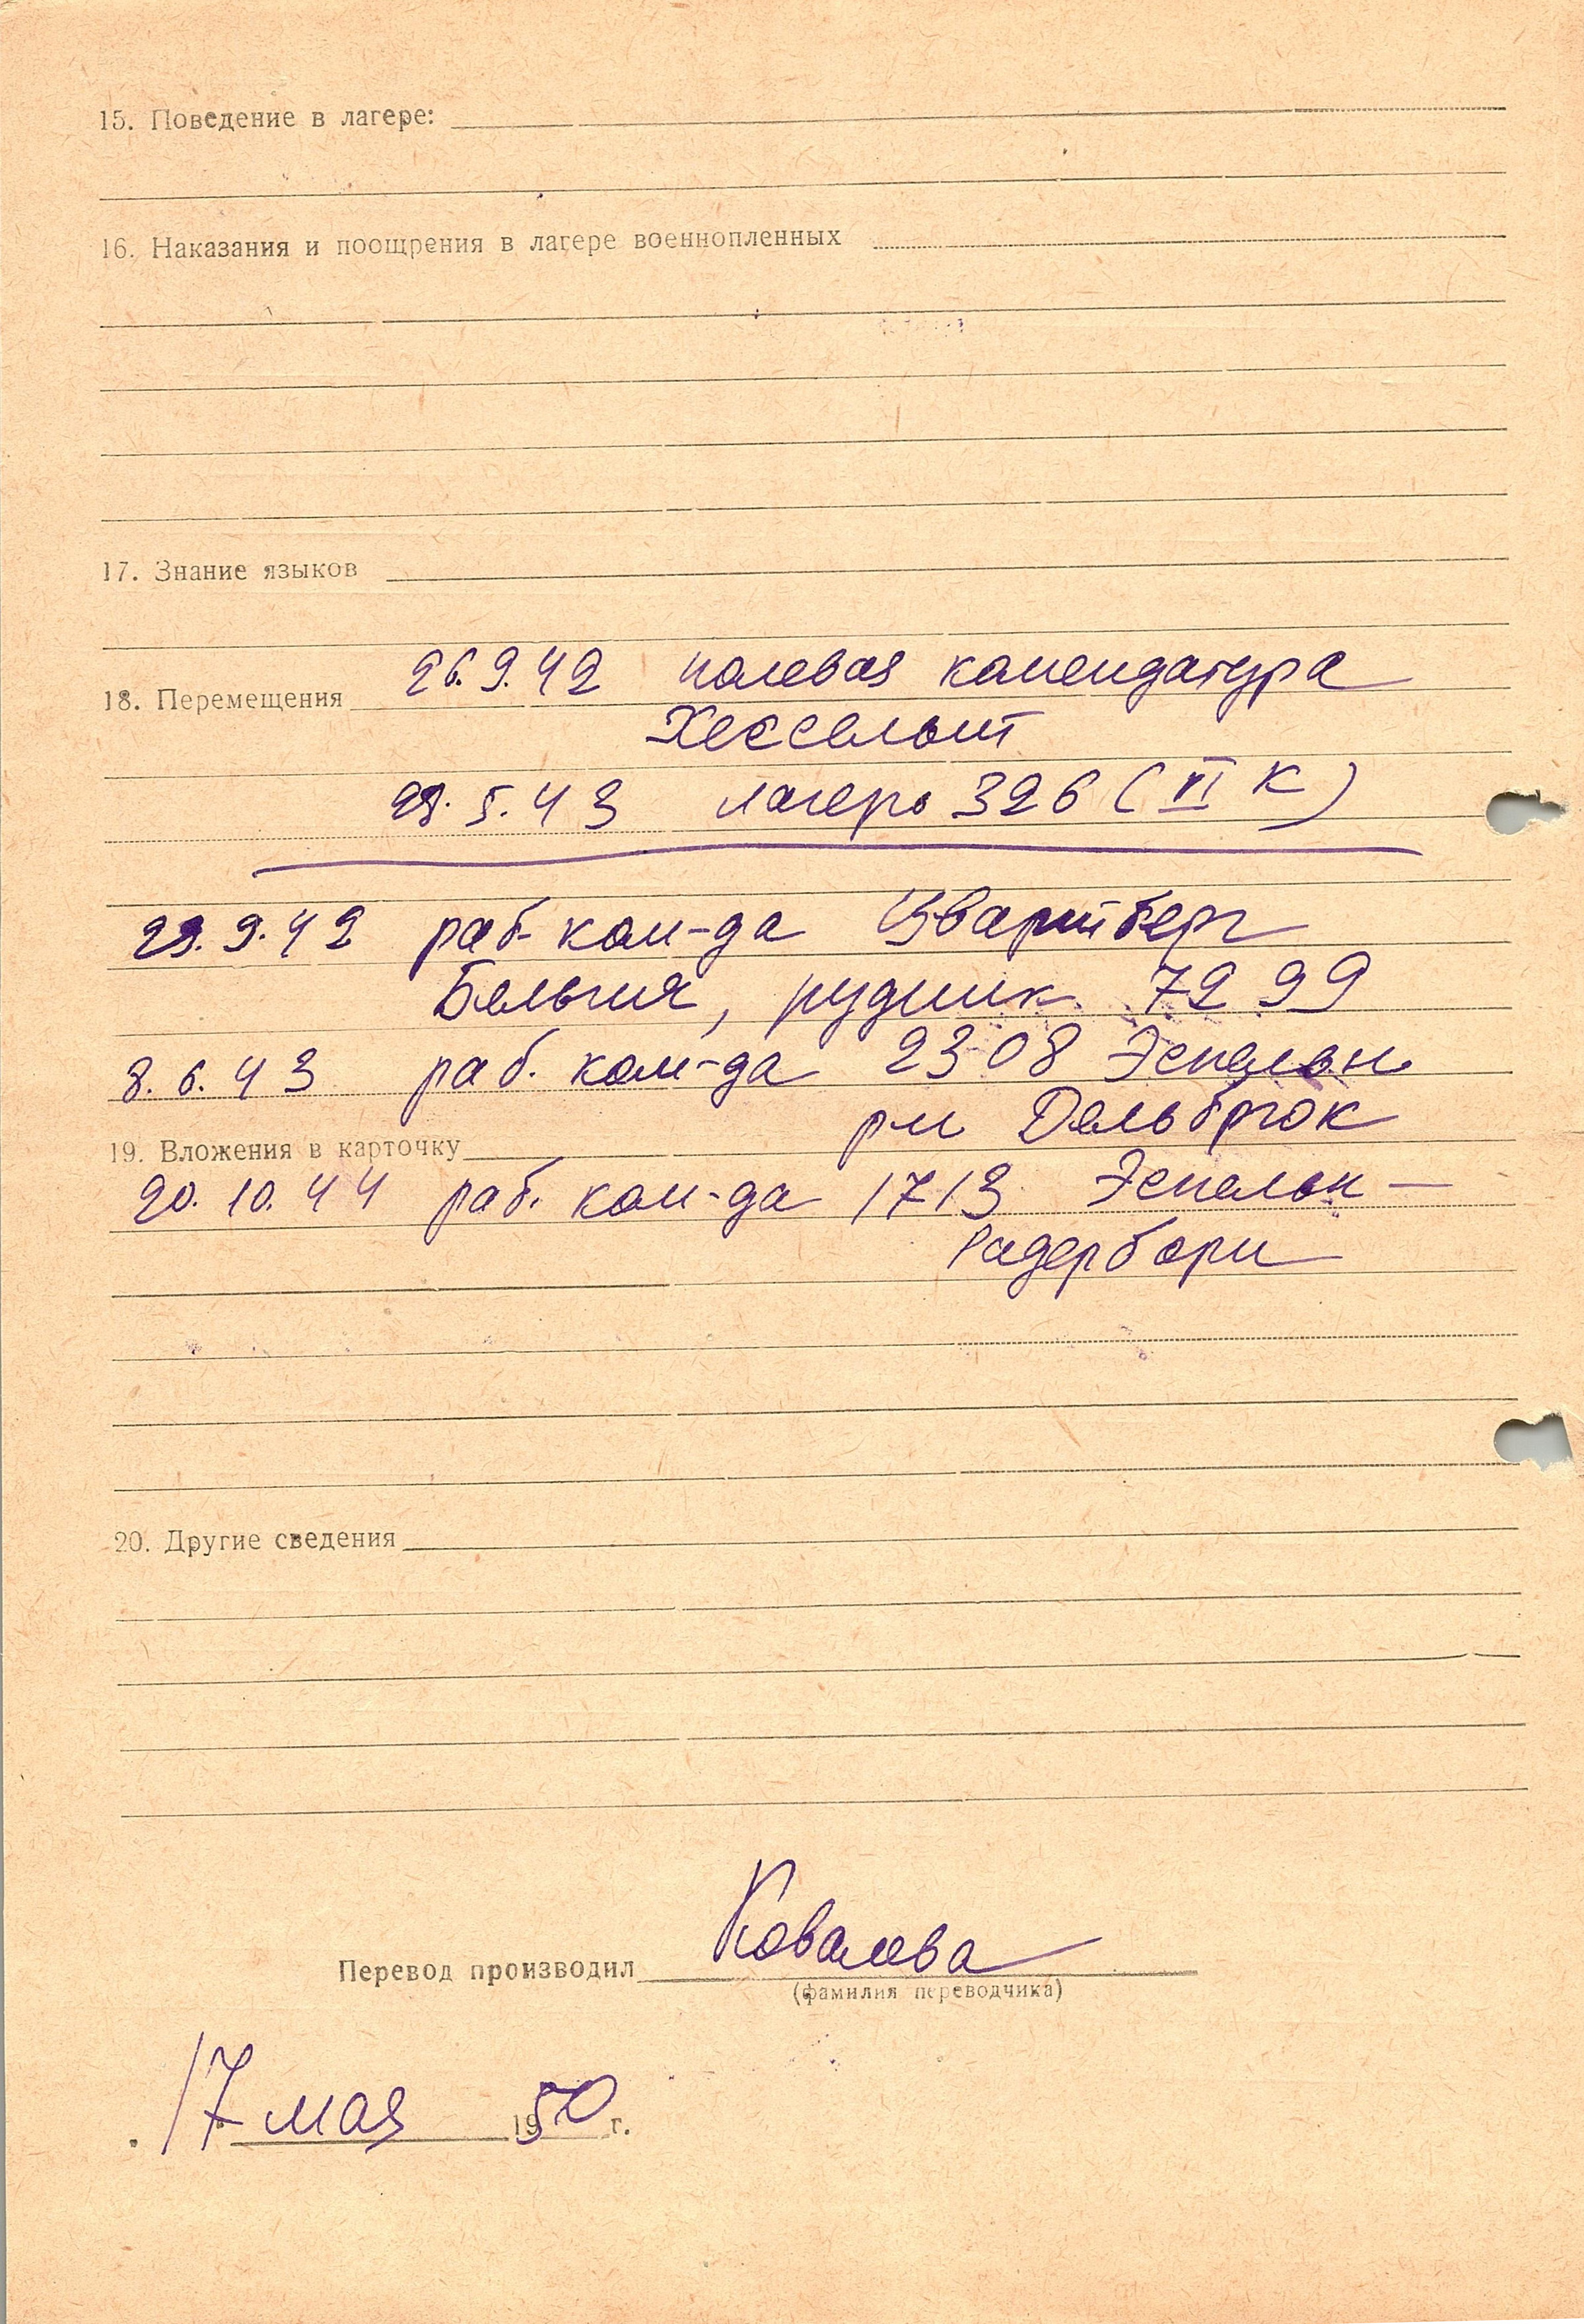 15. Поведение в лагере:
16. Наказания и поощрения в лагере военнопленных
17. Знание языков
26.9.42 полевая комендатура
18. Перемещения
Хассельт
28.5.43 лагерь 326 (VI К)
29.9.42 раб. ком-да Цвартберг
Бельгия, рудник 7299
8.6.43 раб. ком-да 2308 Эспельн
рн Дельбрюк
19. Вложения в карточку
20.10.44 раб. ком-да 1713 Эспельн —
Падерборн
20. Другие сведения
Перевод производил Ковалева
(фамилия переводчика)
17 мая 1950 г.